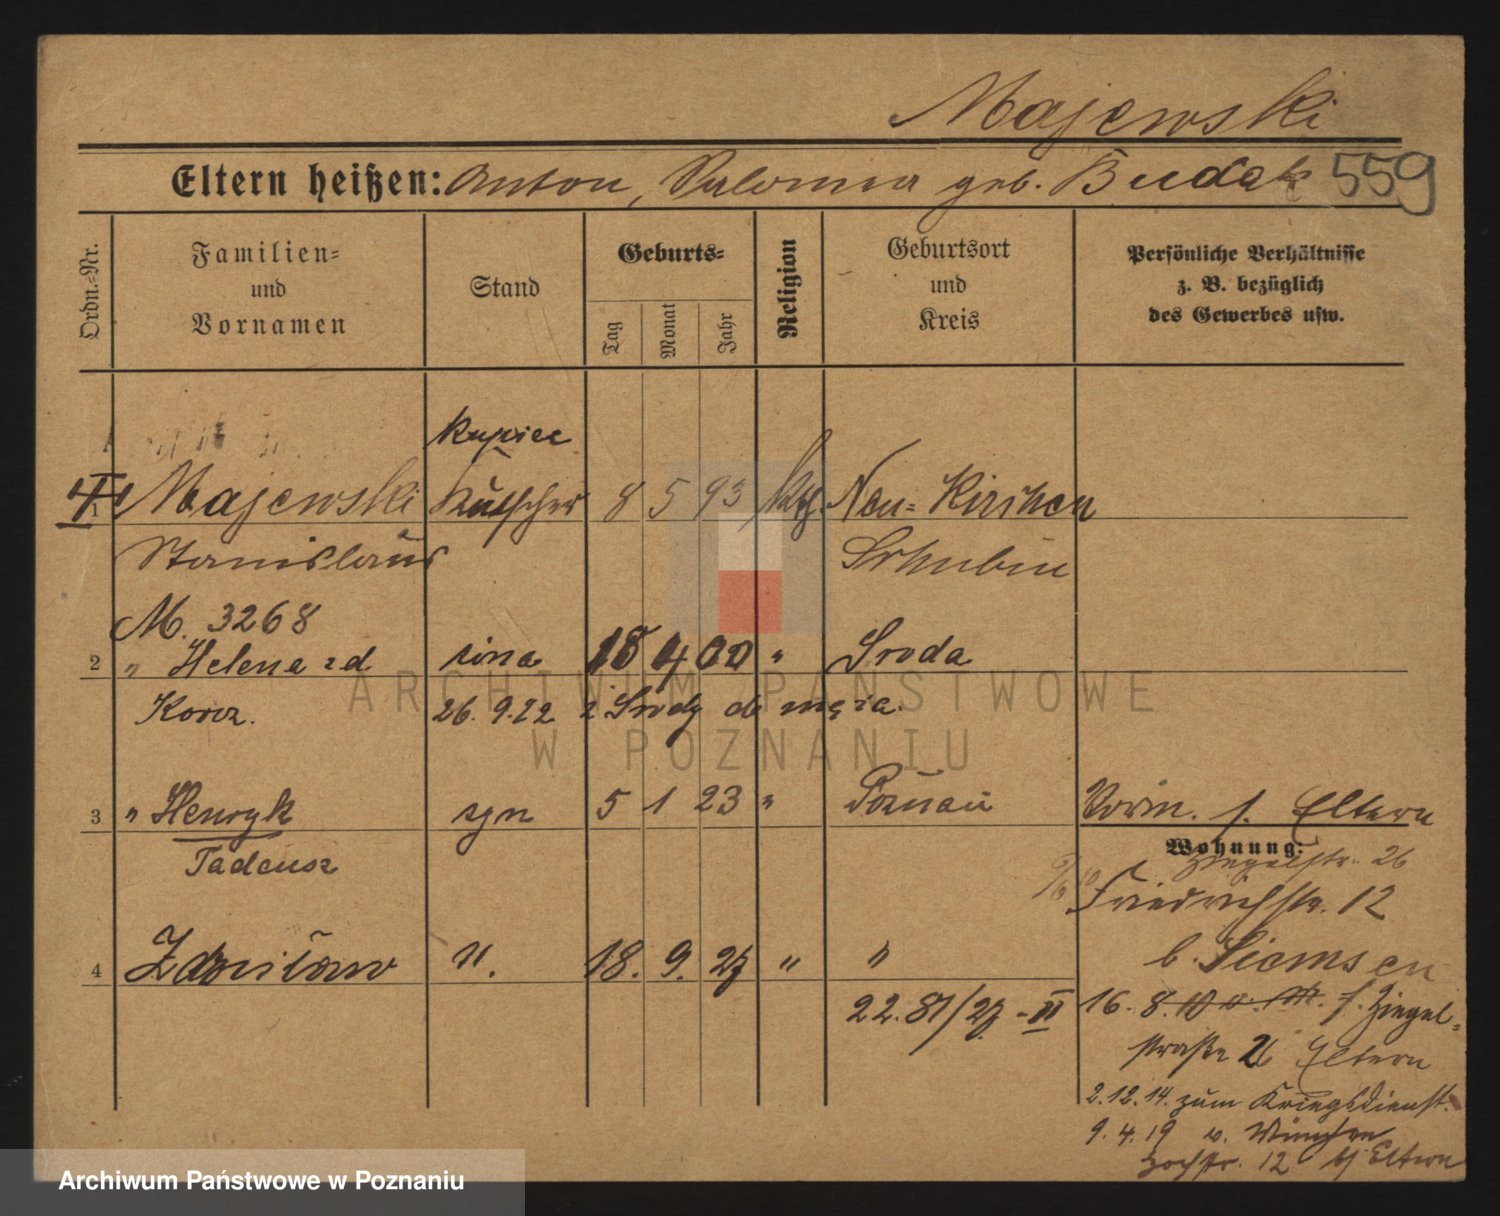 Majewski
Eltern heißen: Anton, Salomea geb. Budak 559
Ordn.-Nr.
Familien-
und
Vornamen
Stand
Geburts-
Tag
Monat
Jahr
Religion
Geburtsort
und
Kreis
Persönliche Verhältnisse
z. B. bezüglich
des Gewerbes usw.
kupiec
1 Majewski Kutscher 8 5 93 kth. Neu-Kirchen
Stanislaus Schubin
M. 3268
2 " Helena zd żona 18 4 00 " Środa
Korcz. 26. 9. 22 z Środy do męża.
3 " Henryk syn 5 1 23 " Poznań Vorm. s. Eltern
Wohnung:
Tadeusz Ziegelstr. 26
Friedrichstr. 12
4 Zdzisław ". 18. 9. 27 " "
b. Siemsen
22.81/27 - II 16. 8. 10 v. M. f. Ziegel-
straße 26 Eltern
2.12.14. zum Kriegsdienst.
9.4.19 v. München
Hochstr. 12 bj Eltern
ARCHIWUM PAŃSTWOWE
W POZNANIU
Archiwum Państwowe w Poznaniu